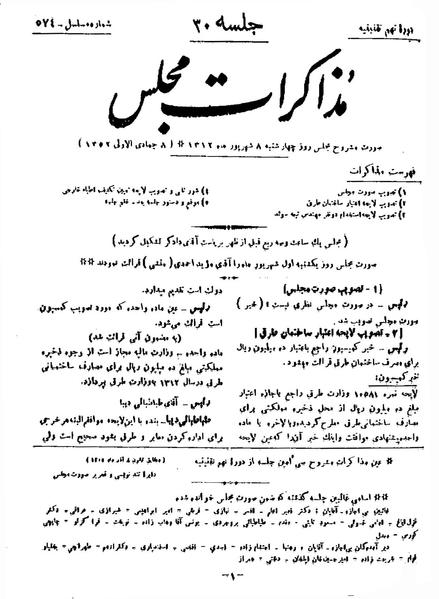 دورهٔ نهم تقنینیه
جلسه ۳۰
شماره مسلسل - ۵۷۴
مذاکرات مجلس
صورت مشروح مجلس روز چهارشنبه ۸ شهریور ماه ۱۳۱۲ * ( ۸ جمادی الاولی ۱۳۵۲ )
فهرست مذاکرات
۱) تصویب صورت مجلس
۲) تصویب لایحه اعتبار ساختمان طرق
۳) تصویب لایحه استخدام دو نفر مهندس تبعه سوئد
۴) شور ثانی و تصویب لایحه تعیین تکلیف اطباء خارجی
۵) موقع و دستور جلسه بعد - ختم جلسه
( مجلس یک ساعت وسه ربع قبل از ظهر بریاست آقای دادگر تشکیل گردید )
صورت مجلس روز یکشنبه اول شهریور ماه را آقای مؤید احمدی ( منشی ) قرائت نمودند **
[ ۱ - تصویب صورت مجلس ]
رئیس - در صورت مجلس نظری نیست ؟ ( خیر )
صورت مجلس تصویب شد.
[ ۲ - تصویب لایحه اعتبار ساختمان طرق ]
رئیس - خبر کمیسیون راجع باعتبار ده میلیون ریال
برای مصارف ساختمان طرق قرائت میشود.
خبر کمیسیون:
لایحه نمره ۱۰۵۸۱ وزارت طرق راجع باجازه اعتبار
مبلغ ده میلیون ریال از محل ذخیره مملکتی برای
مصارف ساختمانی طرق مطرح گردیده بالاخره با ماده
واحده پیشنهادی موافقت و اینک خبر آنرا که عین لایحه
دولت است تقدیم میدارد.
رئیس - عین ماده واحده که مورد تصویب کمیسیون
است قرائت می‌شود.
( به مضمون آتی قرائت شد )
ماده واحده - وزارت مالیه مجاز است از وجوه ذخیره
مملکتی مبلغ ده میلیون ریال برای مصارف ساختمانی
طرق در سال ۱۳۱۲ بوزارت طرق بپردازد.
رئیس - آقای طباطبائی دیبا
طباطبائی دیبا - بنده با این لایحه موافقم البته هر خرجی
برای اداره کردن معابر و طرق بشود صحیح است ولی
* عین مذاکرات مشروح سی امین جلسه از دوره نهم تقنینیه
دایره تند نویسی و تحریر صورت مجلس
** اسامی غائبین جلسه گذشته که ضمن صورت مجلس خوانده شده
- ۱ -